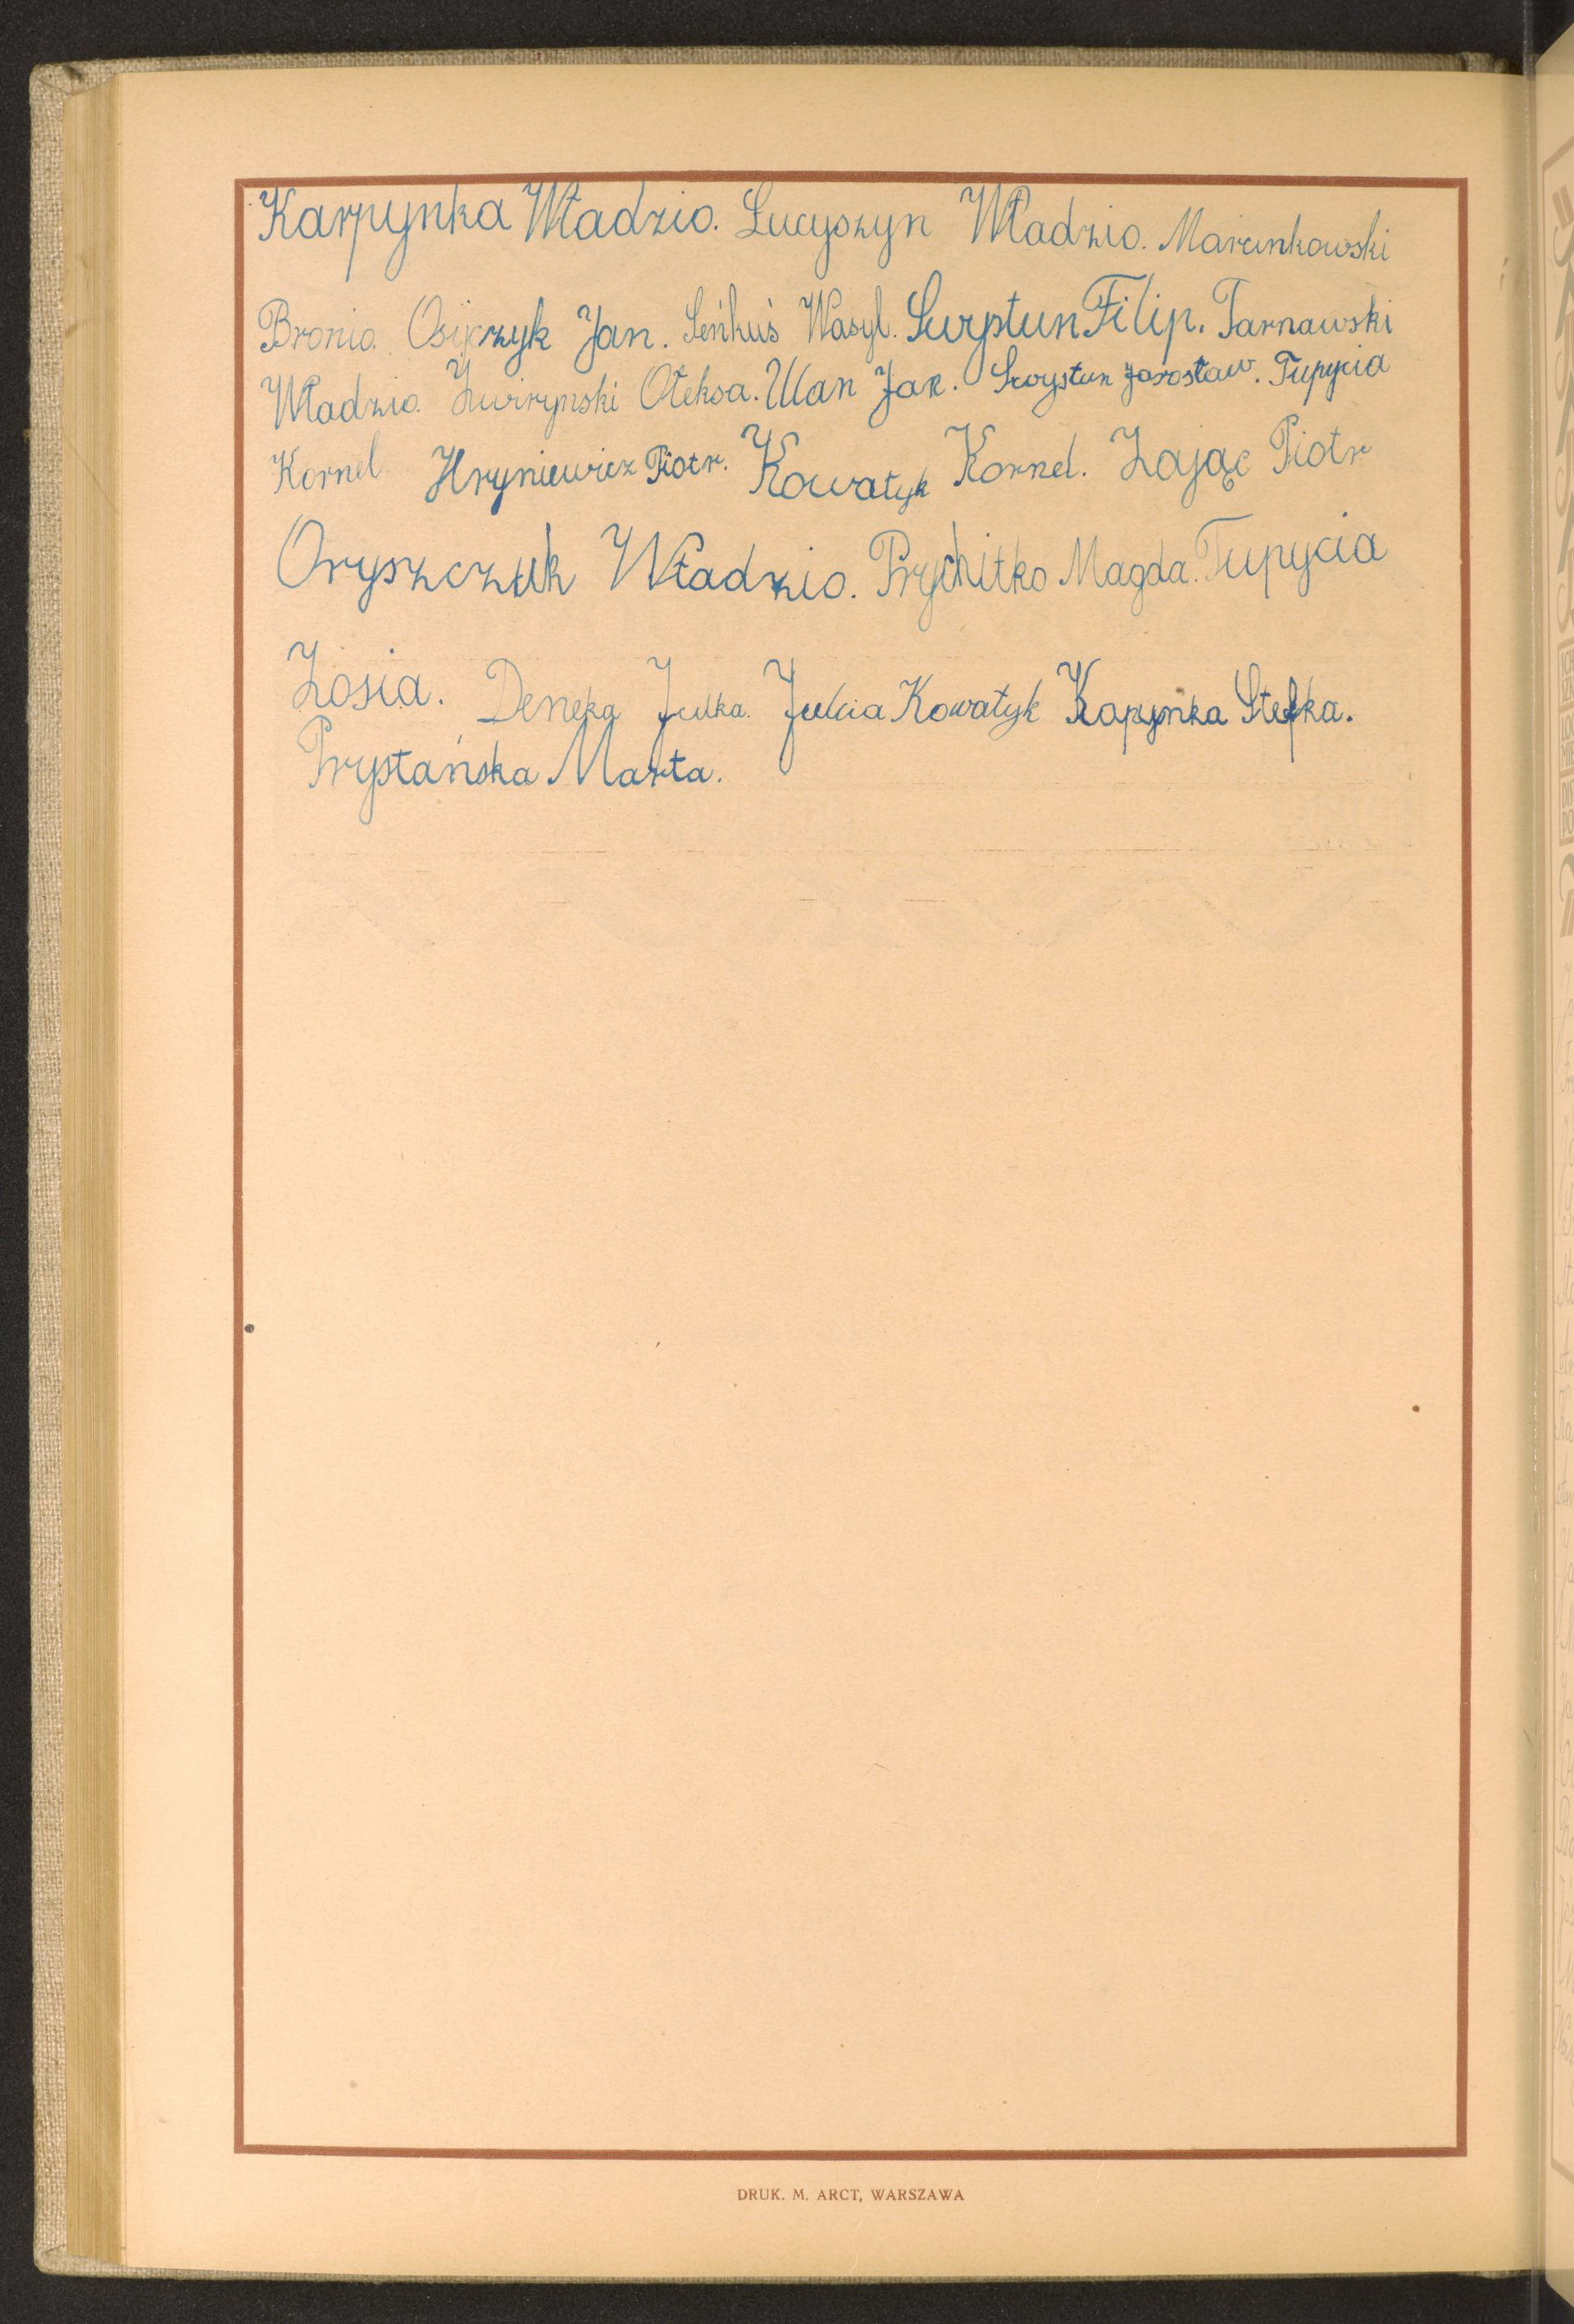 Karpynka Władzio. Lucyszyn Władzio. Marcinkowski
Bronio. Osijczyk Jan. Seńkuś Wasyl. Swystun Filip. Tarnawski
Władzio. Żwirzynski Ołeksa. Ulan Jan. Swystun Jarosław. Tupycia
Kornel Hryniewicz Piotr. Kowałyk Kornel. Zając Piotr
Oryszczuk Władzio. Prychitko Magda. Tupycia
Zosia. Deneka Julka. Julcia Kowałyk Kapynka Stefka.
Prystańska Marta.
DRUK. M. ARCT, WARSZAWA